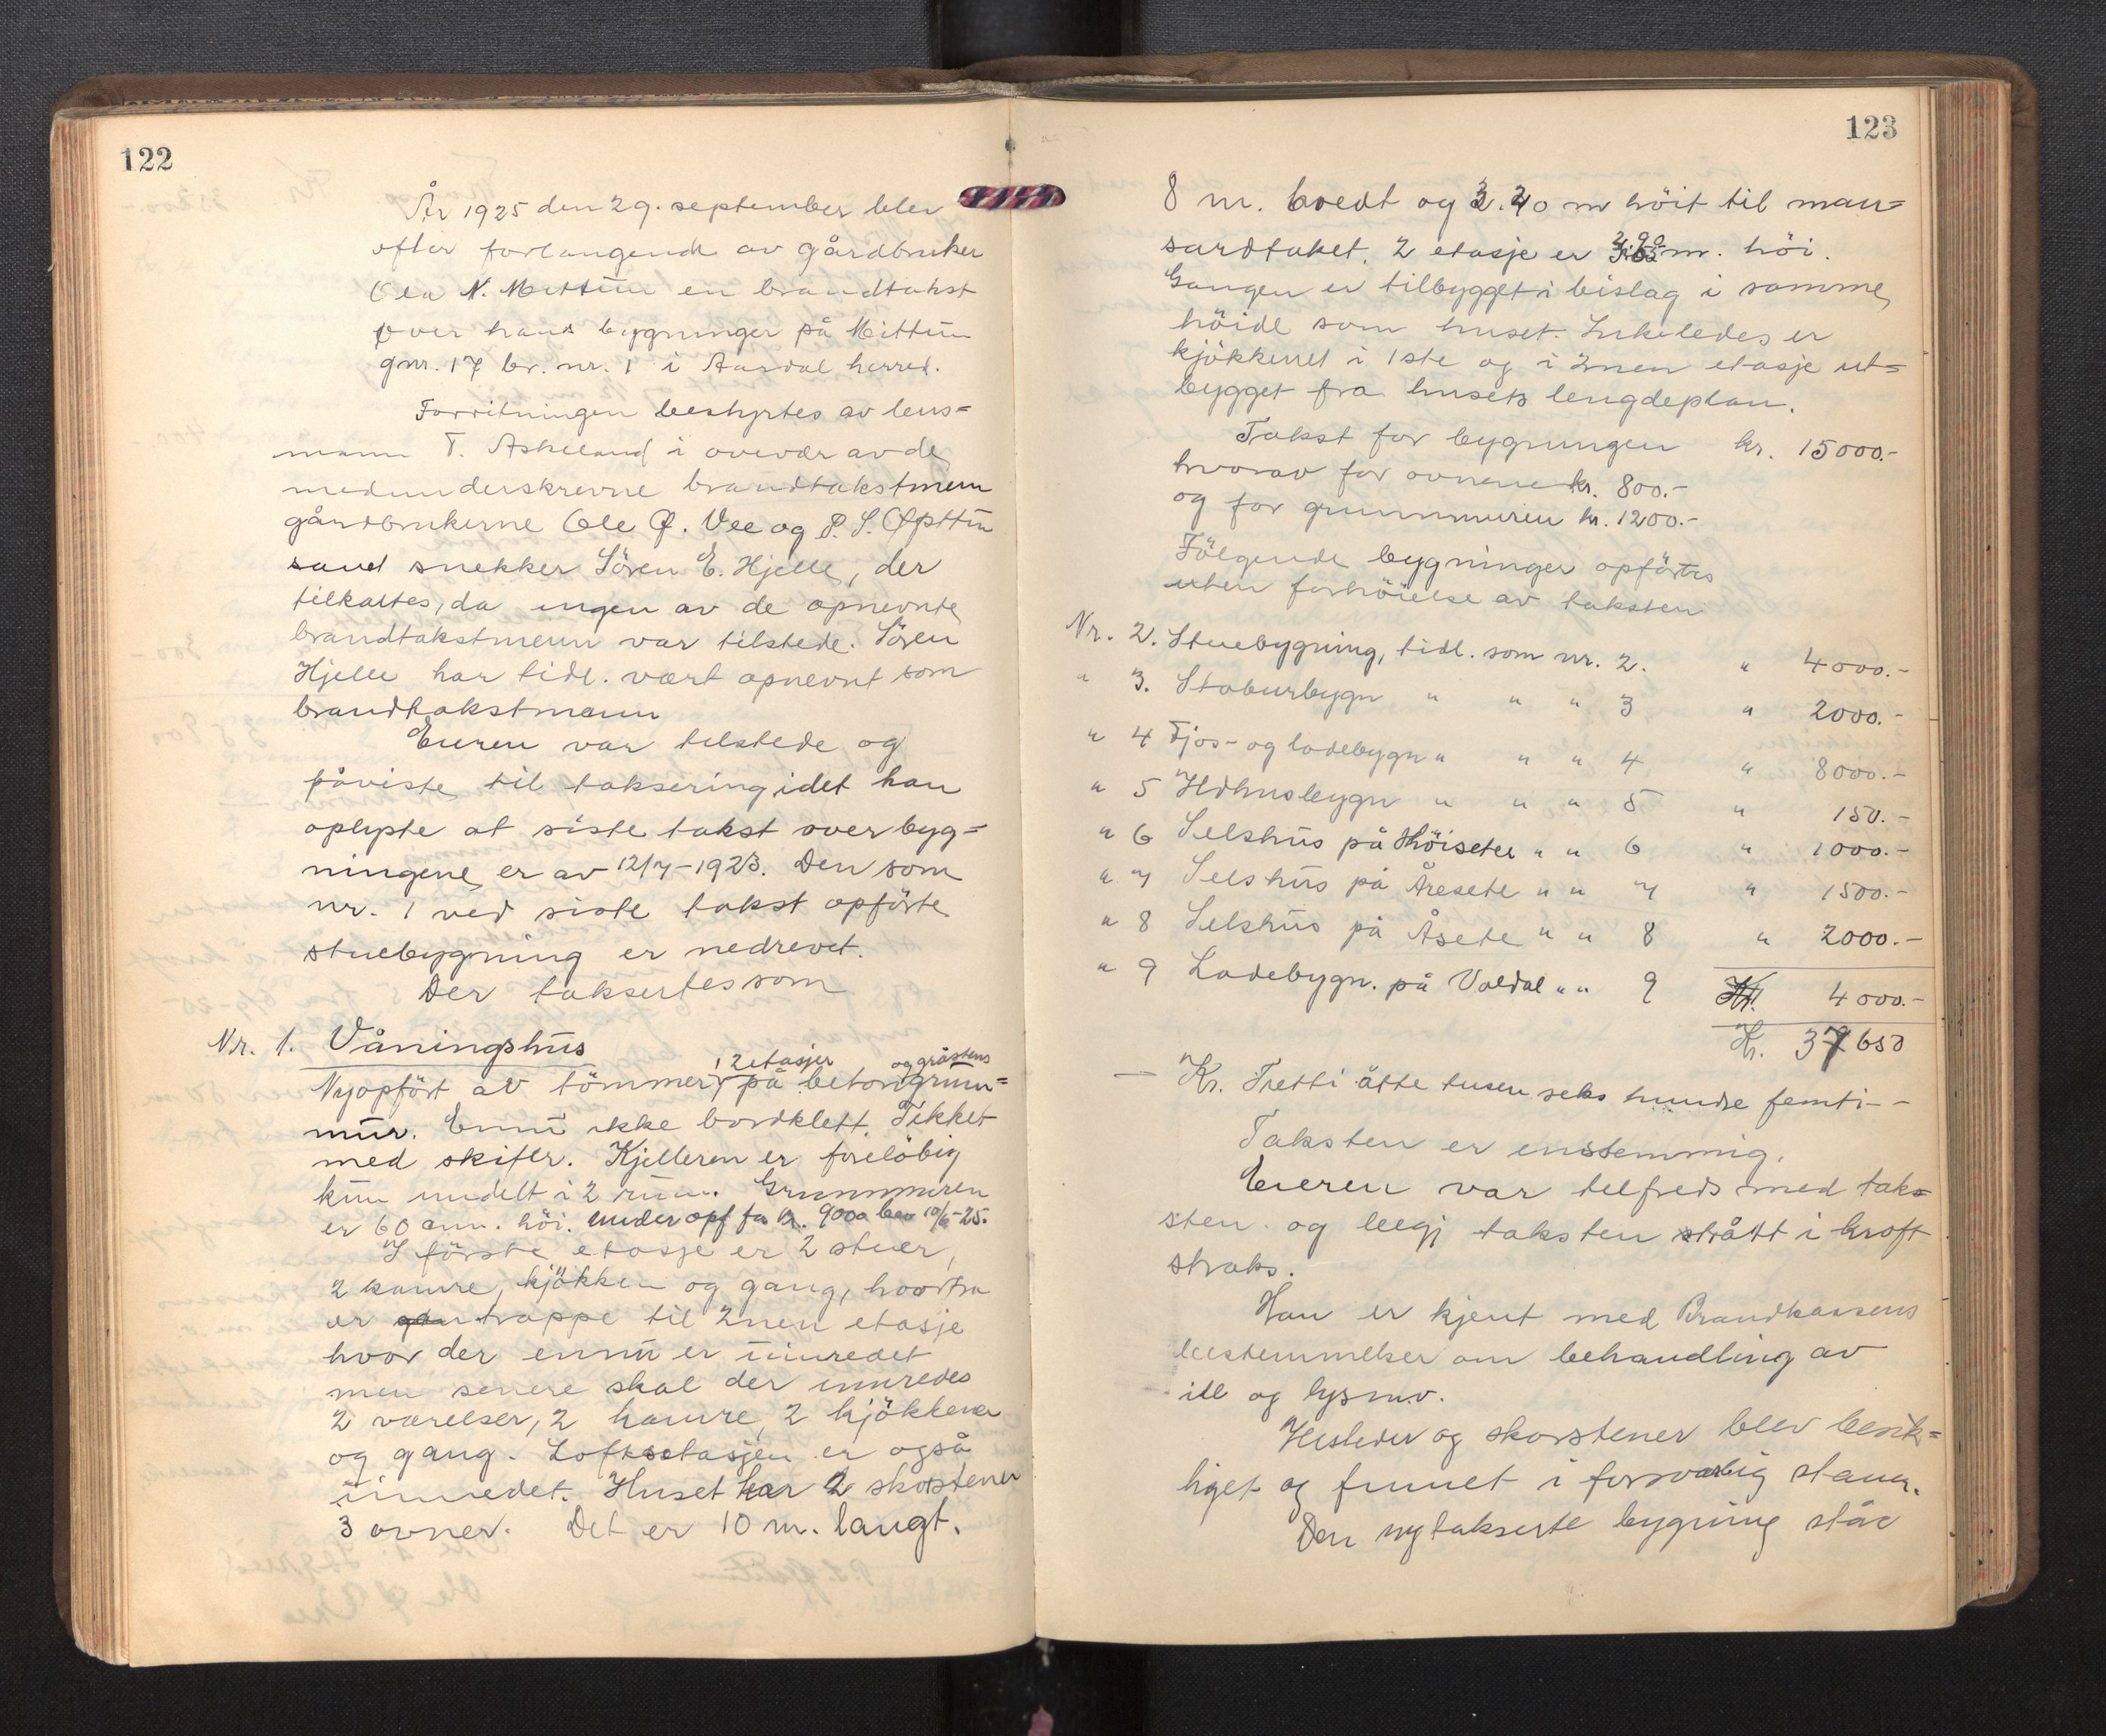 122
År 1925 den 29. september blev
efter forlangende av gårdbruker
Ola N. Mittun en brandtakst
over hans bygninger på Mittun
gnr. 17 br. nr. 1 i Aardal herred.
Forretningen bestyrtes av lens=
mann T. Askeland i overvær av de
medunderskrevne brandtakstmenn
gårdbrukerne Ole O. Vee og P. S. Opttun
samt snekker Sören E. Hjelle, der
tilkaltes, da ingen av de opnevnte
brandtakstmenn var tilstede. Sören
Hjelle har tidl. vært opnevnt som
brandtakstmann
Eieren var tilstede og
påviste til taksering idet han
oplyste at siste takst over byg=
ningene er av 12/7-1923. Den som
nr. 1 ved siste takst opførte
stuebygning er nedrevet.
Der taksertes som
Nr. 1. Våningshus
Nyopført av tömmer i 2 etasjer på betong og gråstens grun=
mur. Ennu ikke bordklett. Tekket
med skifer. Kjelleren er foreløbig
kun inndelt i 2 rum. Grunnmuren
er 60 cm. höi. under opf for kr. 9000 bev 10/6-25.
I første etasje er 2 stuer,
2 kamre, kjøkken og gang, hvorfra
er trappe til 2nen etasje
hvor der ennu er uinredet
men senere skal der innredes
2 værelser, 2 kamre, 2 kjøkkener
og gang. Loftsetasjen er også
uinnredet. Huset har 2 skorstener
3 ovner. Det er 10 m. langt,
123
8 m. bredt og 3.20 m höit til man=
sardtaket. 2 etasje er 2.90 m. höi.
Gangen er tilbygget i bislag i samme
höide som huset. Likeledes er
kjøkkenet i 1ste og i 2nen etasje ut=
bygget fra husets lengdeplan.
Takst for bygningen kr. 15000.-
hvorav for ovnene kr. 800.-
og for grunnmuren kr. 1200.-
Fölgende bygninger opførtes
uten forhöielse av taksten
Nr. 2. Stuebygning, tidl. som nr. 2. " 4000.-
" 3. Staburbygn " " " 3 " 2000.-
" 4 Fjos- og ladebygn " " " 4 " 8000.-
" 5 Ildhusbygn " " " 5 " 150.-
" 6 Selshus på Höiseter " " 6 " 1000.-
" 7 Selshus på Åresete " " 7 " 1500.-
" 8 Selshus på Åsete " " 8 " 2000.-
" 9 Ladebygn. på Valdal " " 9 4000.-
Kr. 37650
— Kr. Tretti åtte tusen seks hundre femti -
Taksten er enstemmig.
Eieren var tilfreds med tak=
sten og taksten trått i kraft
straks.
Han er kjent med Brandkassens
bestemmelser om behandling av
ill og lys m.v.
Ildsteder og skorstener blev besik=
tiget og funnet i forsvarlig stann.
Den nytakserte bygning står